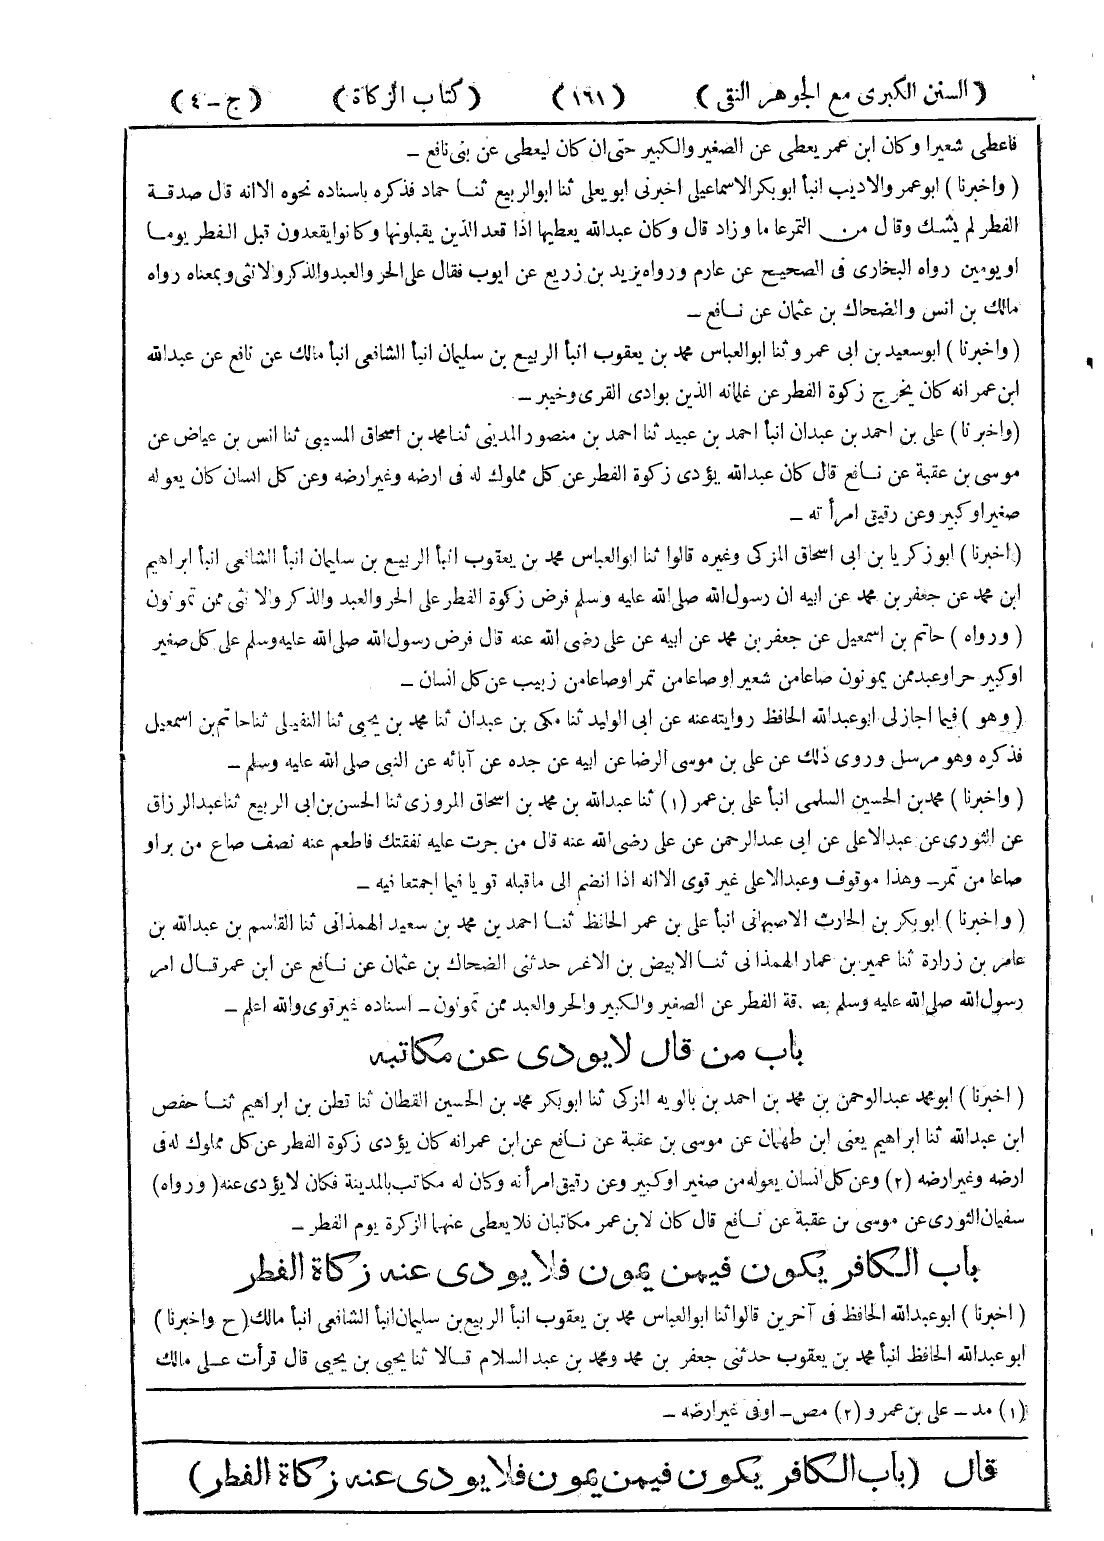 (السنن الكبرى مع الجوهر النقى) (١٦١) (كتاب الزكاة) (ج-٤)
فاعطى شعيرا وكان ابن عمر يعطى عن الصغير والكبير حتى ان كان ليعطى عن بنى نافع ــ
(واخبرنا) ابو عمر والاديب انبأ ابو بكر الاسماعيلى اخبرنى ابو يعلى ثنا ابو الربيع ثنا حماد فذكره باسناده نحوه الا انه قال صدقة
الفطر لم يشك وقال من التمر عا ما وزاد قال وكان عبدالله يعطيها اذا قعد الذين يقبلونها وكانوا يقعدون قبل الفطر يوما
او يومين رواه البخارى فى الصحيح عن عارم ورواه يزيد بن زريع عن ايوب فقال على الحر والعبد والذكر والانثى وبمعناه رواه
مالك بن انس والضحاك بن عثمان عن نافع ــ
(واخبرنا) ابو سعيد بن ابى عمر و ثنا ابو العباس محمد بن يعقوب انبأ الربيع بن سليمان انبأ الشافعى انبأ مالك عن نافع عن عبدالله
ابن عمر انه كان يخرج زكوة الفطر عن غلمانه الذين بوادى القرى وخيبر ــ
(واخبرنا) على بن احمد بن عبدان انبأ احمد بن عبيد ثنا احمد بن منصور المدينى ثنا محمد بن اسحاق المسيبى ثنا انس بن عياض عن
موسى بن عقبة عن نافع قال كان عبدالله يؤدى زكوة الفطر عن كل مملوك له فى ارضه وغير ارضه وعن كل انسان كان يعوله
صغير او كبير وعن رقيق امرأ ته ــ
(اخبرنا) ابو زكريا بن ابى اسحاق المزكى وغيره قالوا ثنا ابو العباس محمد بن يعقوب انبأ الربيع بن سليمان انبأ الشافعى انبأ ابراهيم
ابن محمد عن جعفر بن محمد عن ابيه ان رسول الله صلى الله عليه وسلم فرض زكوة الفطر على الحر والعبد والذكر والانثى ممن تمونون
(ورواه) حاتم بن اسمعيل عن جعفر بن محمد عن ابيه عن على رضى الله عنه قال فرض رسول الله صلى الله عليه وسلم على كل صغير
او كبير حر او عبد ممن يمونون صاعا من شعير او صاعا من تمر او صاعا من زبيب عن كل انسان ــ
(وهو) فيما اجاز لى ابو عبدالله الحافظ روايته عنه عن ابى الوليد ثنا مكى بن عبدان ثنا محمد بن يحيى ثنا النفيلى ثنا حاتم بن اسمعيل
فذكره وهو مرسل وروى ذلك عن على بن موسى الرضا عن ابيه عن جده عن آبائه عن النبى صلى الله عليه وسلم ــ
(واخبرنا) محمد بن الحسين السلمى انبأ على بن عمر (١) ثنا عبدالله بن محمد بن اسحاق المروزى ثنا الحسن بن ابى الربيع ثنا عبد الرزاق
عن الثورى عن عبد الاعلى عن ابى عبد الرحمن عن على رضى الله عنه قال من جرت عليه نفقتك فاطعم عنه نصف صاع من بر او
صاعا من تمر ــ وهذا موقوف وعبد الاعلى غير قوى الا انه اذا انضم الى ما قبله قويا فيما اجتمعا فيه ــ
(واخبرنا) ابو بكر بن الحارث الاصبهانى انبأ على بن عمر الحافظ ثنا احمد بن محمد بن سعيد الهمذانى ثنا القاسم بن عبدالله بن
عامر بن زرارة ثنا عمير بن عمار الهمذانى ثنا الابيض بن الاغر حدثنى الضحاك بن عثمان عن نافع عن ابن عمر قال امر
رسول الله صلى الله عليه وسلم بصدقة الفطر عن الصغير والكبير والحر والعبد ممن تمونون ــ اسناده غير قوى والله اعلم ــ
باب من قال لا يودى عن مكاتبه
(اخبرنا) ابو محمد عبد الرحمن بن محمد بن احمد بن بالويه المزكى ثنا ابو بكر محمد بن الحسين القطان ثنا قطن بن ابراهيم ثنا حفص
ابن عبدالله ثنا ابراهيم يعنى ابن طهمان عن موسى بن عقبة عن نافع عن ابن عمر انه كان يؤدى زكوة الفطر عن كل مملوك له فى
ارضه وغير ارضه (٢) وعن كل انسان يعوله من صغير او كبير وعن رقيق امرأته وكان له مكاتب بالمدينة فكان لا يؤدى عنه (ورواه)
سفيان الثورى عن موسى بن عقبة عن نافع قال كان لابن عمر مكاتبان فلا يعطى عنهما الزكوة يوم الفطر ــ
باب الكافر يكون فيمن يمون فلا يودى عنه زكاة الفطر
(اخبرنا) ابو عبدالله الحافظ فى آخرين قالوا ثنا ابو العباس محمد بن يعقوب انبأ الربيع بن سليمان انبأ الشافعى انبأ مالك (ح واخبرنا)
ابو عبدالله الحافظ انبأ محمد بن يعقوب حدثنى جعفر بن محمد ومحمد بن عبد السلام قالا ثنا يحيى بن يحيى قال قرأت على مالك
(١) مد ــ على بن عمرو (٢) مص ــ اوفى غير ارضه ــ
قال (باب الكافر يكون فيمن يمون فلا يودى عنه زكاة الفطر)